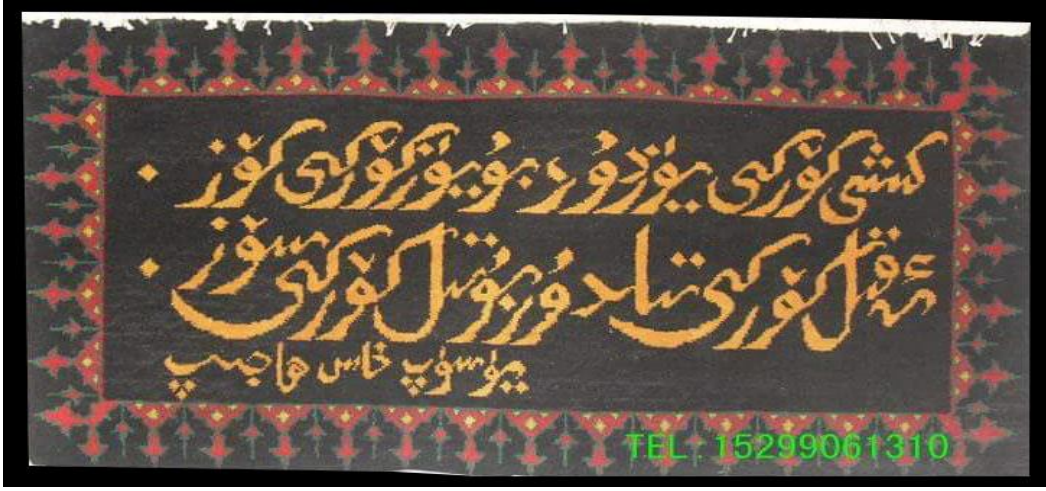 كىشى كۆركى يۈزدۇر، بۇ يۈز كۆركى كۆز .
ئەقىل كۆركى تىلدۇر بۇ تىل كۆركى سۆز .
يۈسۈپ خاس ھاجىپ
TEL : 15299061310